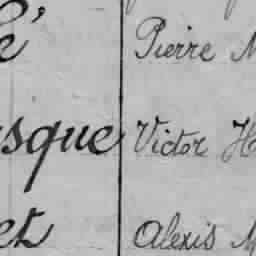 é Pierre M
sque Victor H
et Alexis M